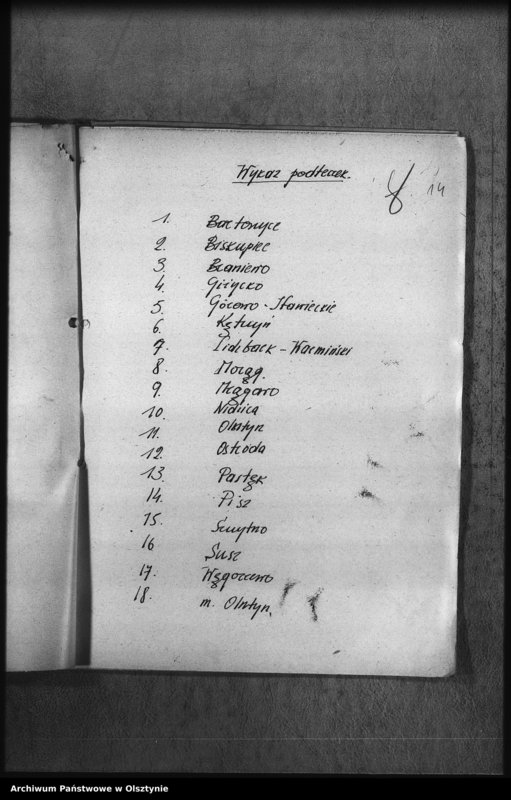 Wykaz podteczek.
14
1. Bartoszyce
2. Biskupiec
3. Braniewo
4. Giżycko
5. Górowo - Iławieckie
6. Kętrzyn
7. Lidzbark - Warmiński
8. Morąg.
9. Mrągowo
10. Nidzica
11. Olsztyn
12. Ostróda
13. Pasłęk
14. Pisz
15. Szczytno
16 Susz
17. Węgorzewo
18. m. Olsztyn.
Archiwum Państwowe w Olsztynie